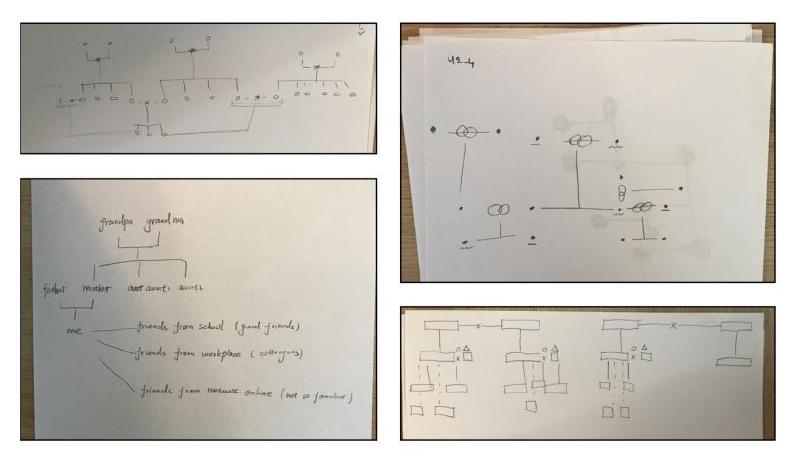 grandpa grandma
father mother aunts aunts
me
friends from school (good friends)
friends from workplace (colleagues)
friends from network online (not so familiar)
U2-4